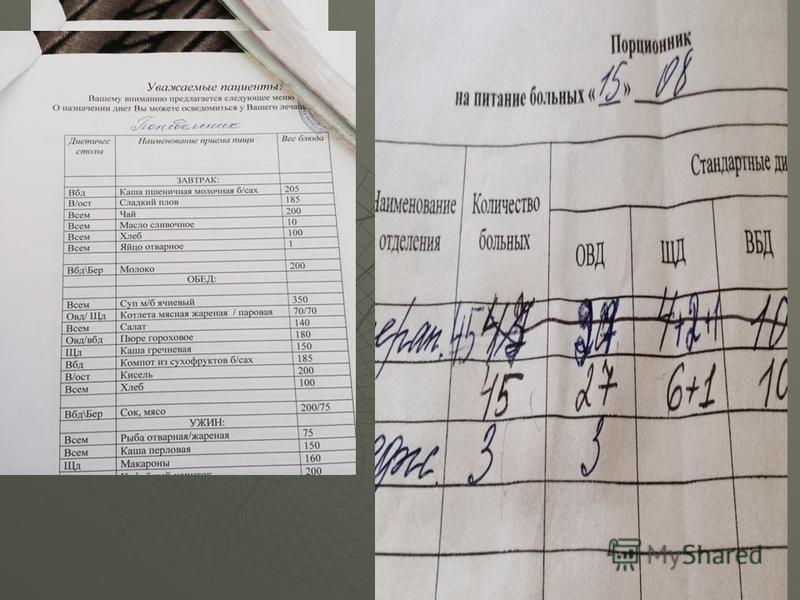 Уважаемые пациенты!
Вашему вниманию предлагается следующее меню
О назначении диет Вы можете осведомиться у Вашего
Понедельник
Диетичес столы Наименование приема пищи Вес блюда
ЗАВТРАК:
Вбд Каша пшеничная молочная б/сах 205
В/ост Сладкий плов 185
Всем Чай 200
Всем Масло сливочное 10
Всем Хлеб 100
Всем Яйцо отварное 1
Вбд\Бер Молоко 200
ОБЕД:
Всем Суп м/б ячневый 350
Овд/ Щд Котлета мясная жареная / паровая 70/70
Всем Салат 140
Овд/вбд Пюре гороховое 180
Щд Каша гречневая 150
Вбд Компот из сухофруктов б/сах 185
В/ост Кисель 200
Всем Хлеб 100
Вбд\Бер Сок, мясо 200/75
УЖИН:
Всем Рыба отварная/жареная 75
Всем Каша перловая 150
Щд Макароны 160
200
Порционник
на питание больных « 15 » 08
Наименование отделения Количество больных Стандартные ди
ОВД ЩД ВБД
45 4+2+1 10
45 27 6+1 10
3 3
MyShared